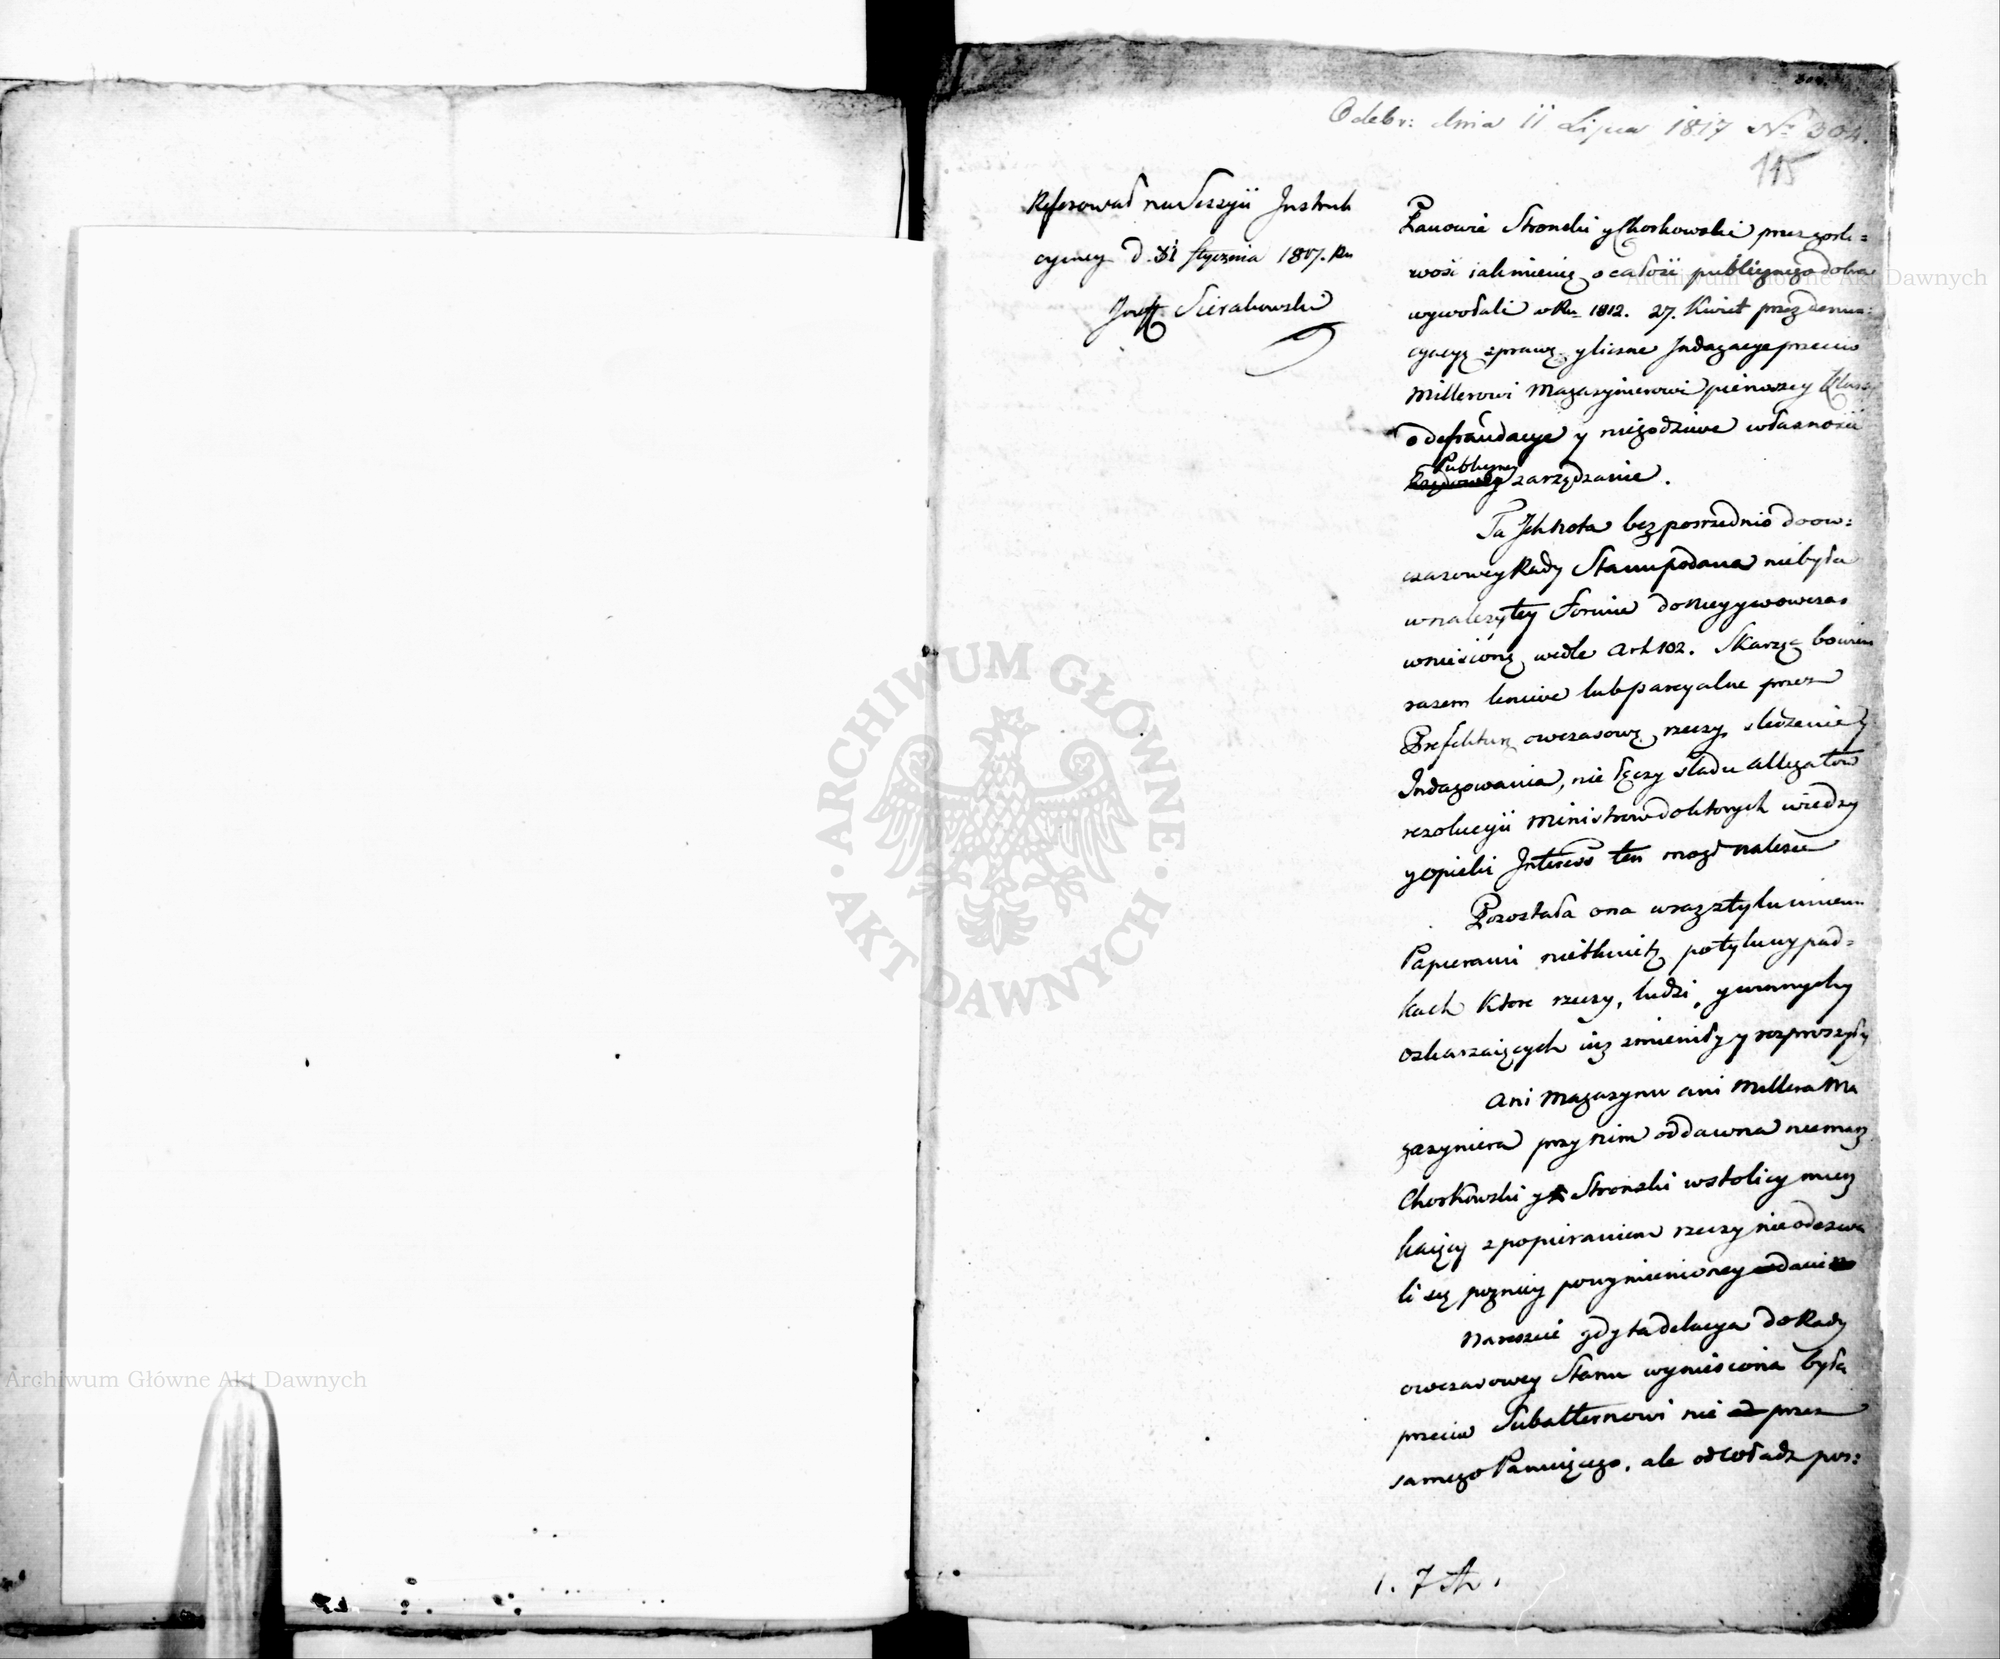 304.
Odebr: dnia 11 Lipca 1817 No 304.
115
Referował na Sessyii Instruk
cyiney d. 31 Stycznia 1817. Ru
Józeff Sierakowski
Panowie Stronski y Chorkowski przez gorli=
wość iakmienię o całość publicznego dobra
wywołali w Ru 1812. 27. Kwiet przez denun:
cyacyę sprawę y liczne Indagacye przeciw
Millerowi Magazynierowi pierwszey Klassy
o defraudacye y niegodziwe własności
Publiczney zarządzanie.
Ta Ich Nota bezposrednio do ow:
czasowey Rady Stanu podana niebyła
w należytey Formie do Niey ywowczas
wniesioną wedle Art 102. Skarżą bowiem
razem leniwe lub parcyalne przez
Prefekturę owczasową rzeczy sledzenie y
Indagowania, nie łączy sladu allegatow
rezolucyii Ministrow do ktorych wiedzy
y opieki Interess ten mogł należeć
Pozostała ona wraz z tylu innemi
Papierami nietknietą po tylu wypad=
kach Ktore rzeczy, ludzi, y winnych y
oskarzaiących iuż zmieniły y rozproszyły
Ani Magazynu ani Millera Ma
gazyniera przy nim oddawna niemasz
Chorkowski y Stronski w stolicy miesz
kaiący z popieraniem rzeczy nieodezwa
li się pozniey powymienioney
Nareszcie gdy ta delacya do Rady
owczasowey Stanu wyniesiona była
przeciw Subalternowi nie przez
samego Panuiącego, ale od Władz pos:
1. 7 
ARCHIWUM GŁÓWNE AKT DAWNYCH
Archiwum Główne Akt Dawnych
Archiwum Główne Akt Dawnych